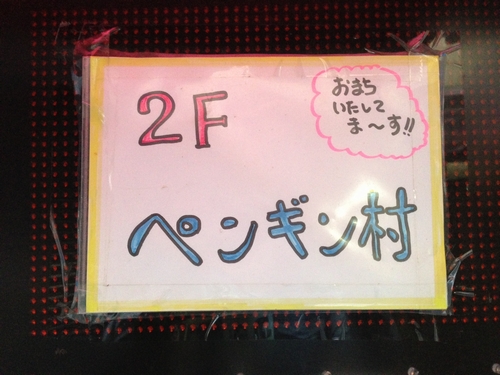 2F
おまち
いたして
ま〜す!!
ペンギン村